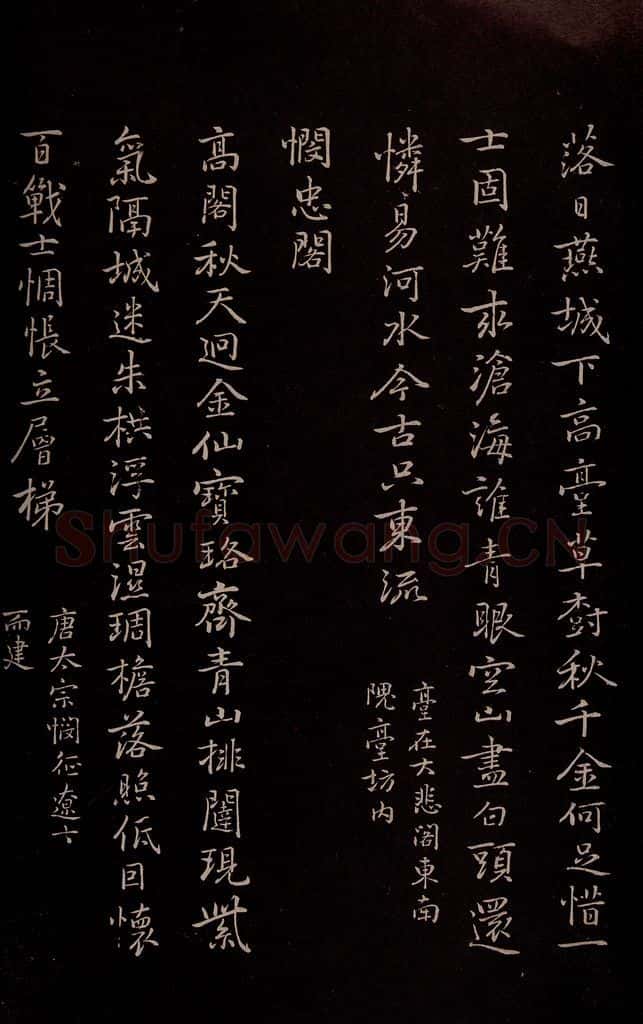 落日燕城下高臺草樹秋千金何足惜一
士固難求滄海誰青眼空山盡白頭還
憐易河水今古只東流
臺在大悲閣東南
隗臺坊内
憫忠閣
高閣秋天迥金仙寶珞齊青山排闥現紫
氣隔城迷朱栱浮雲濕琱檐落照低回懷
百戰士惆悵立層梯
唐太宗憫征遼士
而建
Shufawang.CN